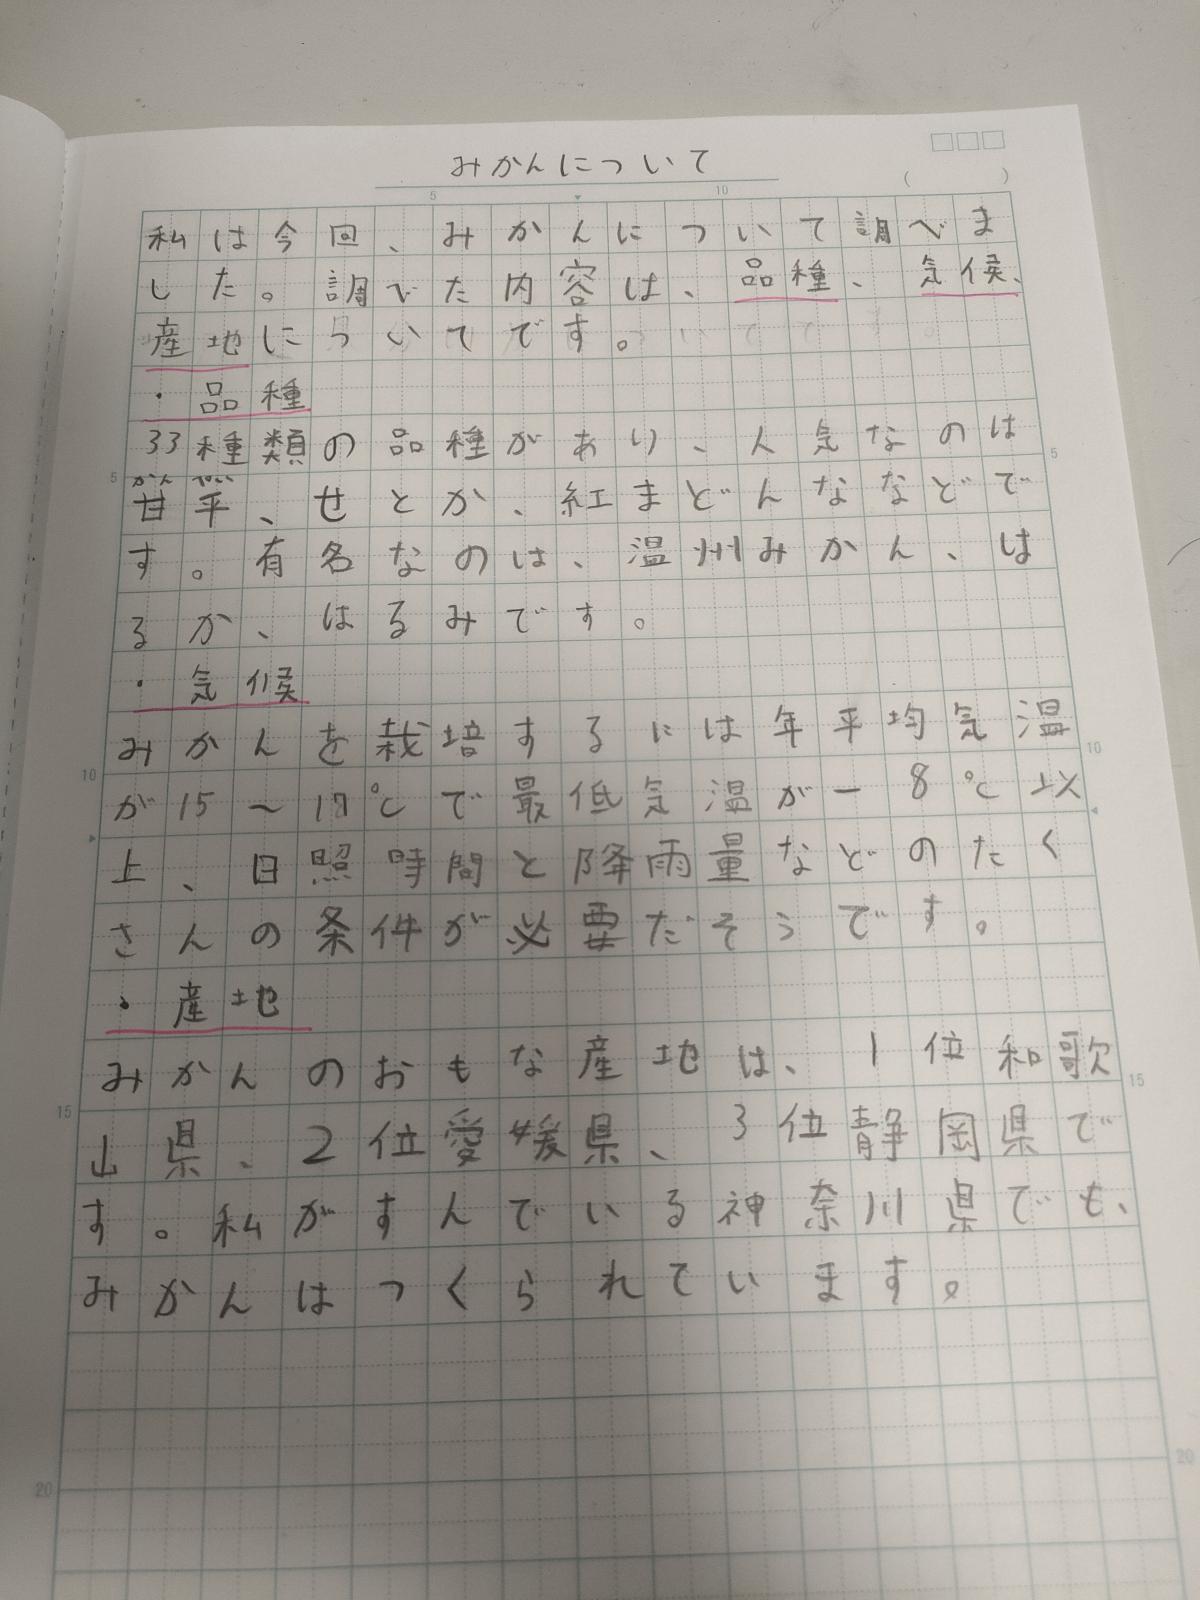 みかんについて
私は今回、みかんについて調べま
した。調べた内容は、品種、気候、
産地についてです。
・品種
33種類の品種があり、人気なのは
甘平、せとか、紅まどんななどで
す。有名なのは、温州みかん、は
るか、はるみです。
・気候
みかんを栽培するには年平均気温
が15～17℃で最低気温が－8℃以
上、日照時間と降雨量などのたく
さんの条件が必要だそうです。
・産地
みかんのおもな産地は、1位和歌
山県、2位愛媛県、3位静岡県で
す。私がすんでいる神奈川県でも、
みかんはつくられています。
5
10
5
5
10
10
15
15
20
20